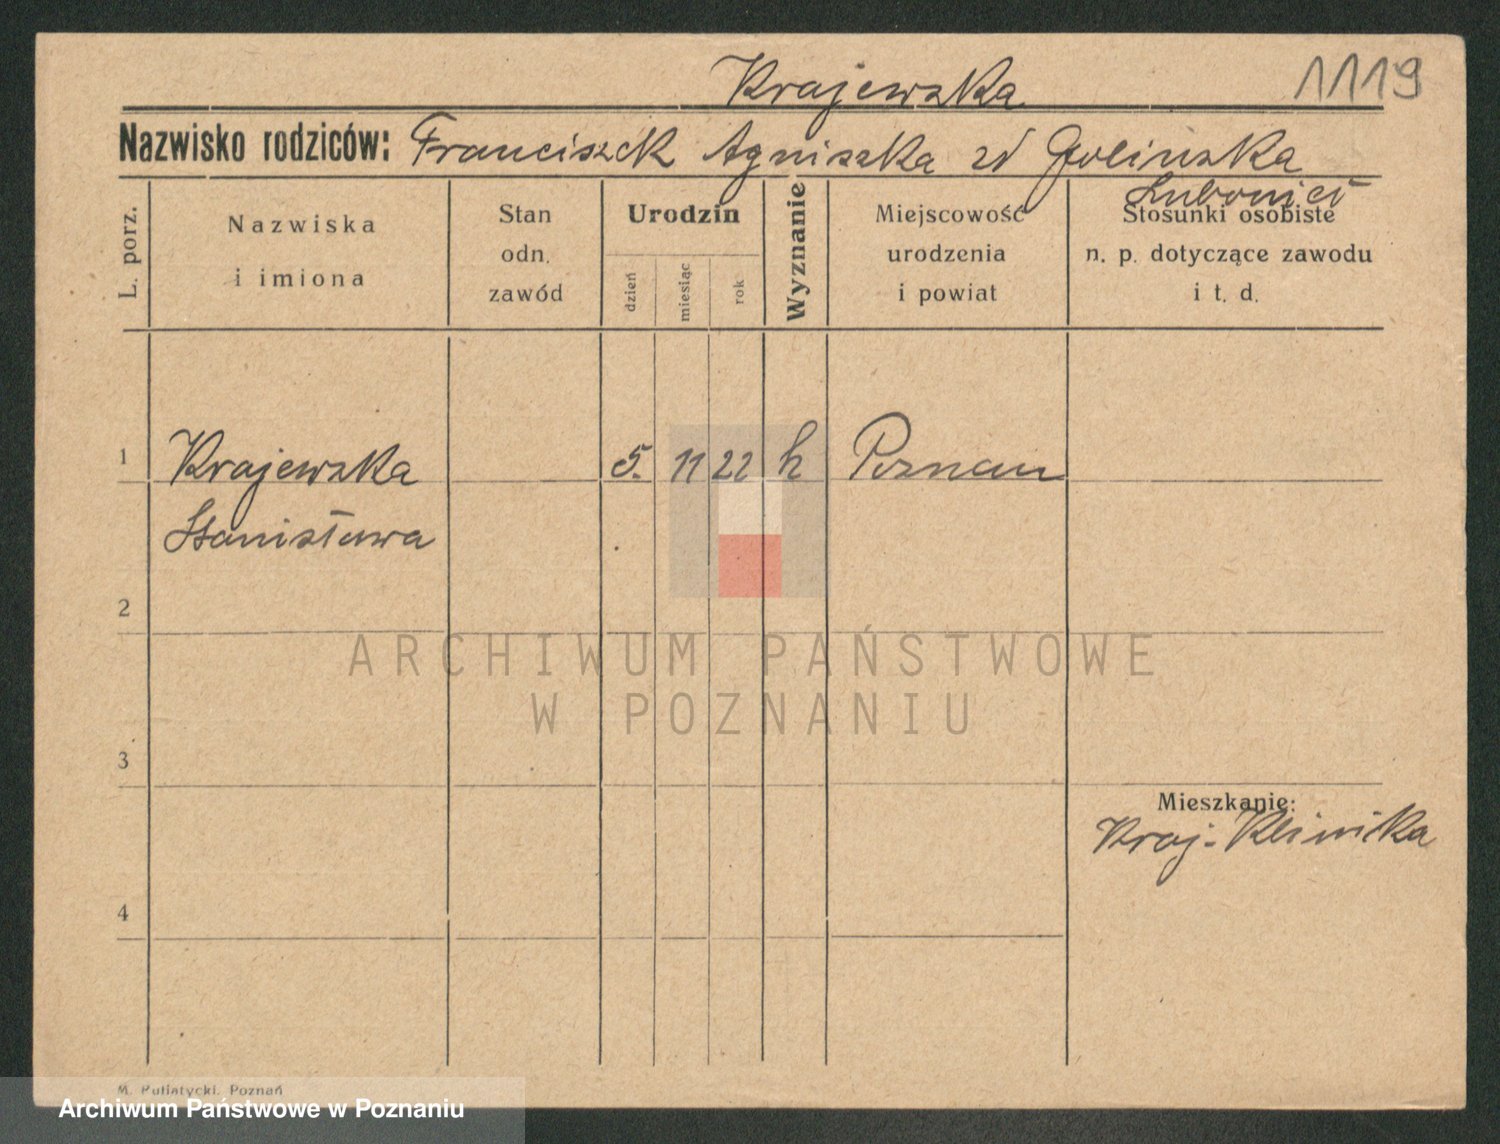 Krajewska
1119
Nazwisko rodziców: Franciszek Agniszka zd Golińska
L. porz.
Nazwiska
i imiona
Stan
odn.
zawód
Urodzin
dzień
miesiąc
rok
Wyznanie
Miejscowość
urodzenia
i powiat
Stosunki osobiste
n. p. dotyczące zawodu
i t. d.
1 Krajewska 5. 11 22 k Poznan
Stanisława
2
3
4
Mieszkanie:
Kraj. Klinika
ARCHIWUM PAŃSTWOWE
W POZNANIU
M. Putiatycki, Poznań
Archiwum Państwowe w Poznaniu